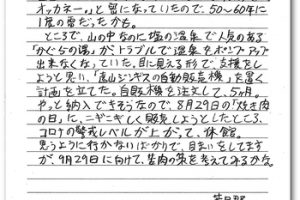 オッカネー。」と冨になっていたので、50〜60年に
1度の雪だったかも。
ところで、山の中なのに塩の温泉で人気のある
「かぐらの湯」がトラブルで温泉をポンプアップ
出来なくなっていた。目に見える形で、支援をし
ようと思い、「遠山ジンギスの自動販売機」を置く
計画を立てた。自販機を注文して、5ヶ月。
やっと納入できそうなので、8月29日の「焼き肉
の日」に、ニギニギしく販売しようとしたところ、
コロナの警戒レベルが上がって、休館。
思うように行かないばかりで、目まいをしてます
が、9月29日に向けて、生肉の策を考えてみるかな。